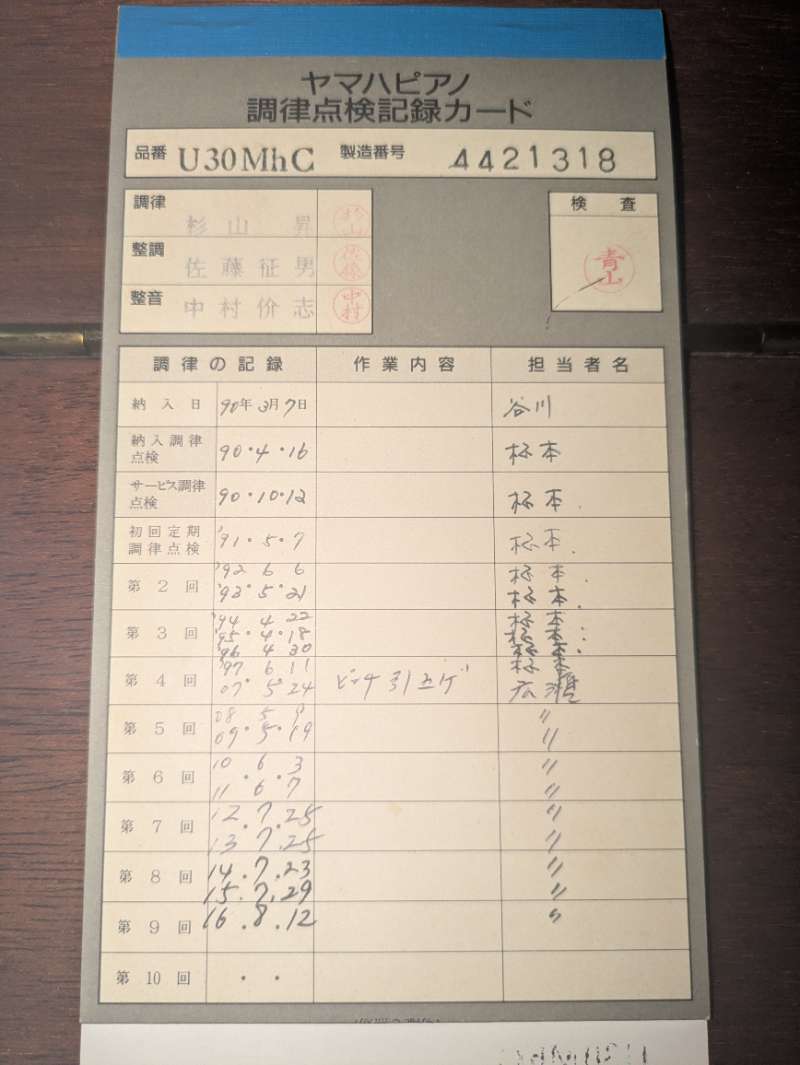 ヤマハピアノ
調律点検記録カード
品番 U30MhC 製造番号 4421318
調律 杉山 昇 杉山
整調 佐藤征男 佐藤
整音 中村价志 中村
検査
青山
調律の記録 作業内容 担当者名
納入日 90年3月7日 谷川
納入調律点検 90・4・16 杉本
サービス調律点検 90・10・12 杉本
初回定期調律点検 '91・5・7 杉本
第2回 '92 6 6 杉本
'93・5・21 杉本
第3回 '94 4 22 杉本
'95・4・18 杉本
'96 4 30 杉本
第4回 '97 6 11 杉本
07・5・24 ピッチ引上げ
第5回 08 5 9 〃
09・5・19 〃
第6回 10 6 3 〃
11 6 7 〃
第7回 12.7.25 〃
13.7.25 〃
第8回 14.7.23 〃
15.7.29 〃
第9回 16.8.12 〃
第10回 ・ ・